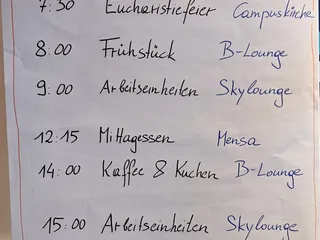 7:30 Eucharistiefeier Campuskirche
8:00 Frühstück B-Lounge
9:00 Arbeitseinheiten Skylounge
12:15 Mittagessen Mensa
14:00 Kaffee & Kuchen B-Lounge
15:00 Arbeitseinheiten Skylounge